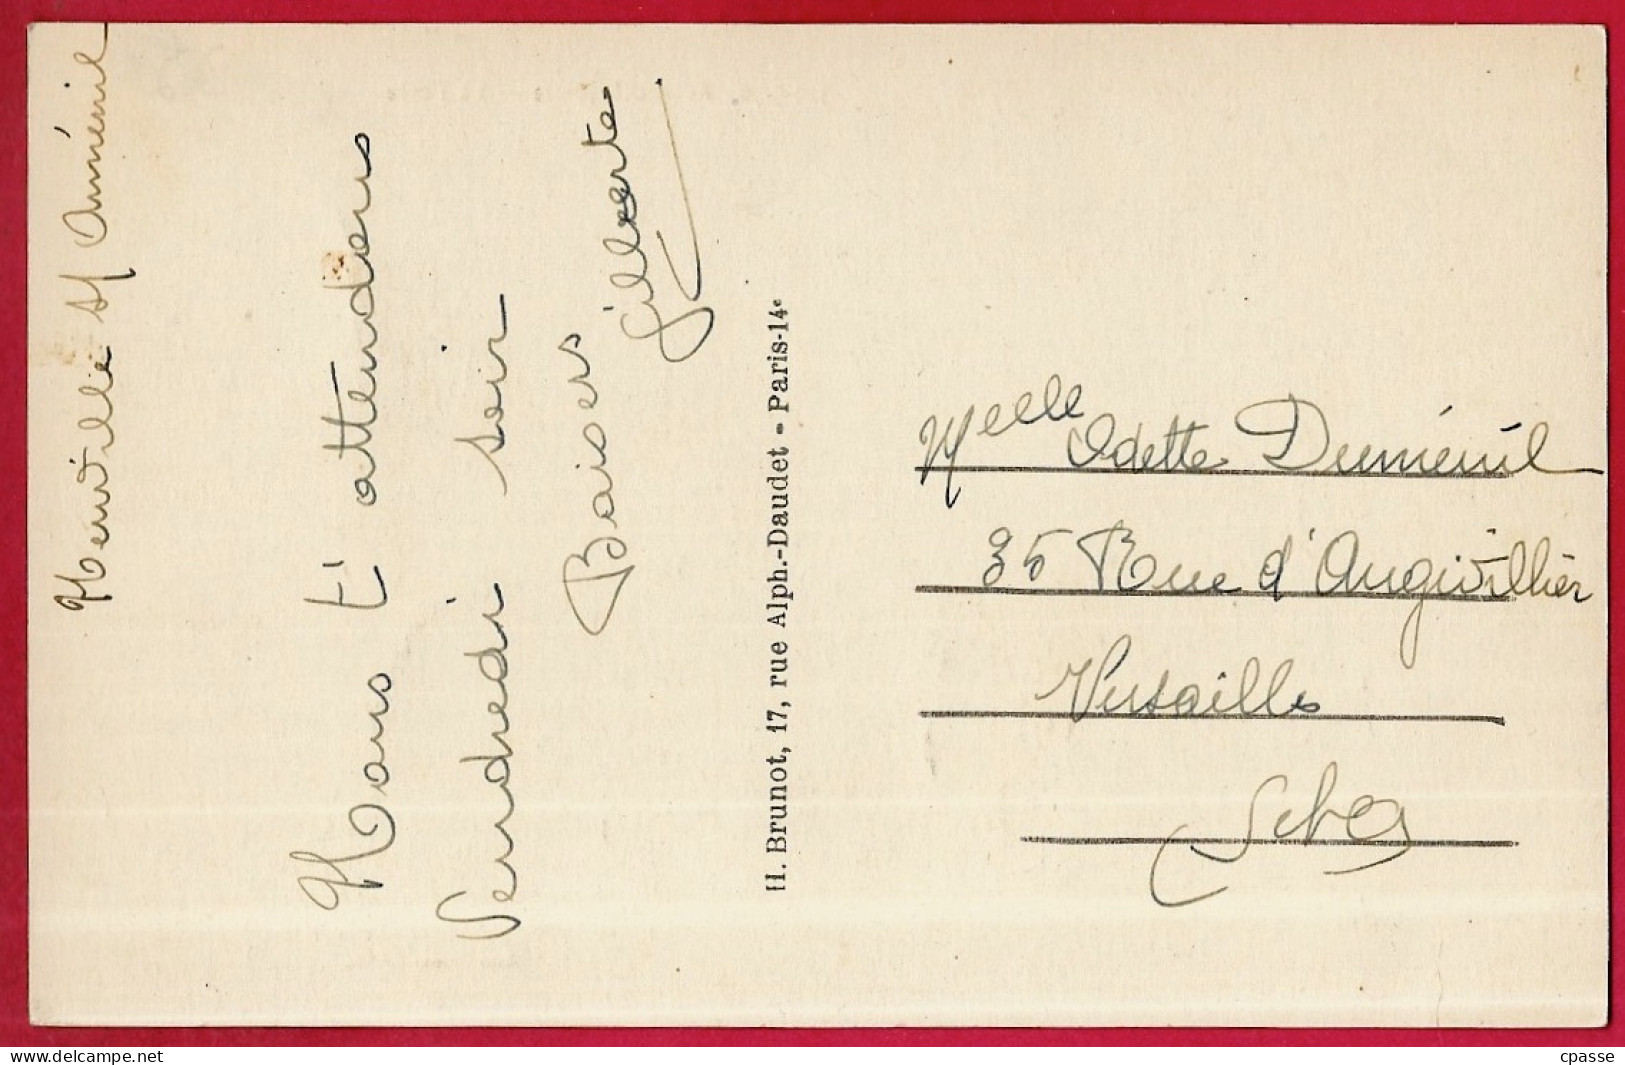 Nous t'attendons
Vendredi soir
Baisers
Gilberte
H. Brunot, 17, rue Alph.-Daudet - Paris-14e
Melle Odette Duménil
35 Rue d'Angivillier
Versailles
S et O
delcampe.net
cpasse